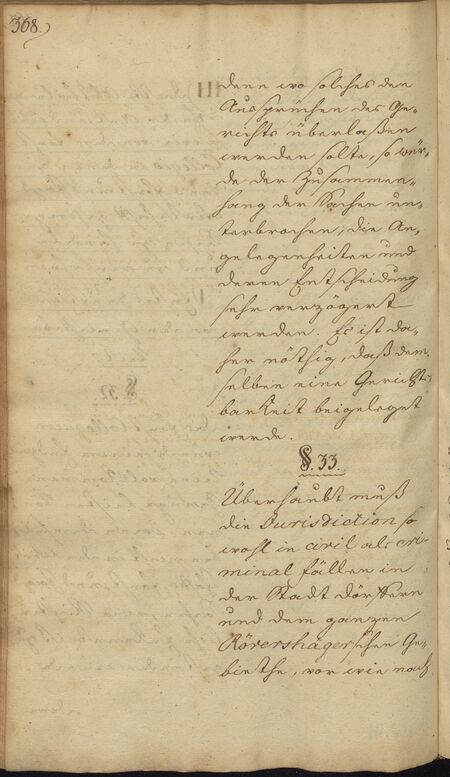 368.)
denn wo solches den
Aussprüchen des Ge-
richts überlaßen
werden solte, so wür-
de der Zusammen-
hang der Sachen un-
terbrochen, die An-
gelegenheiten und
deren Entscheidung
sehr verzögert
werden. Es ist da-
her nöthig, daß dem-
selben eine Gerichts-
barkeit beigeleget
werde.
§. 33.
Überhaubt muß
die Jurisdiction so
wohl in civil als cri-
minal fällen in
der Stadt dörffern
und dem ganzen
Rövershagerschen Ge-
biethe, vor wie nach